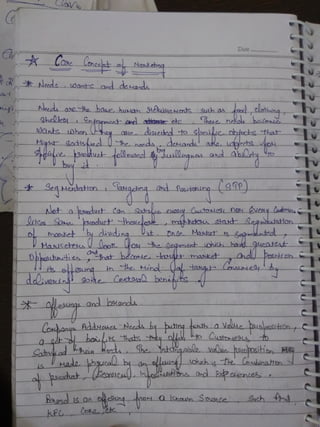 Date
Core Concept of Marketing
* Needs, wants and demands
Needs are the basic human requirements such as food, clothing
shelter, enjoyment and etc. These needs become
wants when they are directed to specific objects that
might satisfied the needs, demands are wants for
specific product followed by willingness and ability to
buy it.
* Segmentation, Targeting and Positioning (STP)
Not a product can satisfy every customer nor every customer
likes same product therefore, marketers start segmentation
of market by dividing it. Once Market is segmented
Marketers look for the segment which have greatest
opportunities, and that become target market, and position
its offering in the mind of target consumers by
delivering some central benefits
* Offerings and brands
Company Addresses Needs by putting forth a value proposition,
a set of benefits that they offer to customers to
satisfied their needs. The intangible value proposition
is made physical by an offering, which is the combination
of product, services, informations and experiences.
Brand is an offering from a known source such
KFC, etc